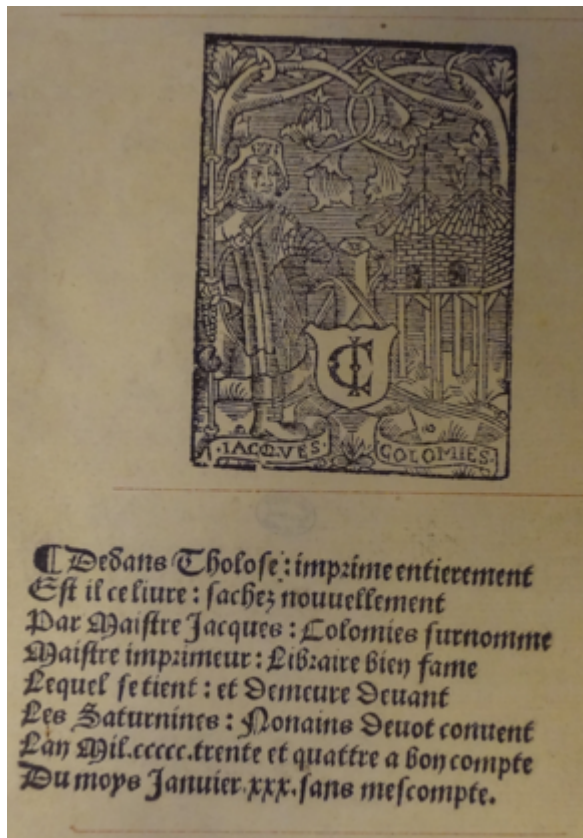 IC
·IACQVES· COLOMIES·
¶ Dedans Tholose : imprime entierement
Est il ce liure : sachez nouuellement
Par Maistre Jacques : Colomies surnomme
Maistre imprimeur : Libraire bien fame
Lequel se tient : et demeure deuant
Les Saturnines : Nonains deuot conuent
Lan Mil.ccccc.trente et quattre a bon compte
Du moys Januier.xxx.sans mescompte.